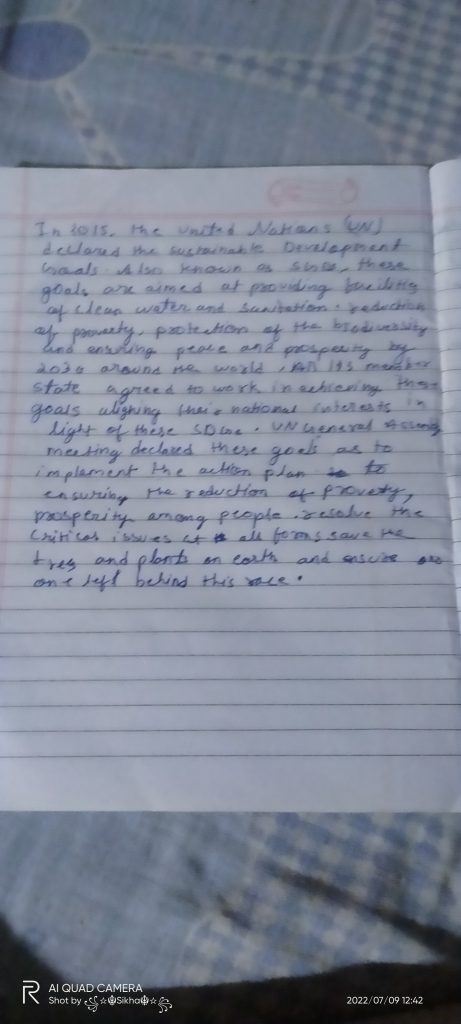 In 2015, the United Nations (UN)
declared the sustainable Development
Goals. Also known as SDGs, these
goals are aimed at providing facilities
of clean water and sanitation. reduction
of proverty, protection of the biodiversity
and ensuring peace and prosperity by
2030 around the world. All 193 member
state agreed to work in achieving these
goals aligning their national interests in
light of these SDGs. UN General Assembly
meeting declared these goals as to
implement the action plan to
ensuring the reduction of proverty,
prosperity among people. resolve the
critical issues at all forms save the
trees and plants on earth and ensure
one left behind this race.
AI QUAD CAMERA
Shot by Sikha
2022/07/09 12:42